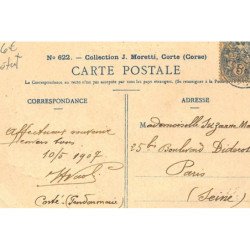 6€
No 622. - Collection J. Moretti, Corte (Corse)
CARTE POSTALE
La Correspondance au recto n'est pas acceptée par tous les pays étrangers. (Se renseigner à la Poste)
CORRESPONDANCE
ADRESSE
Affectueux
Mademoiselle Suzanne Ma
35 bis Boulevard Diderot
10/5 1907
Paris
(Seine)
Corte, Gendarmerie